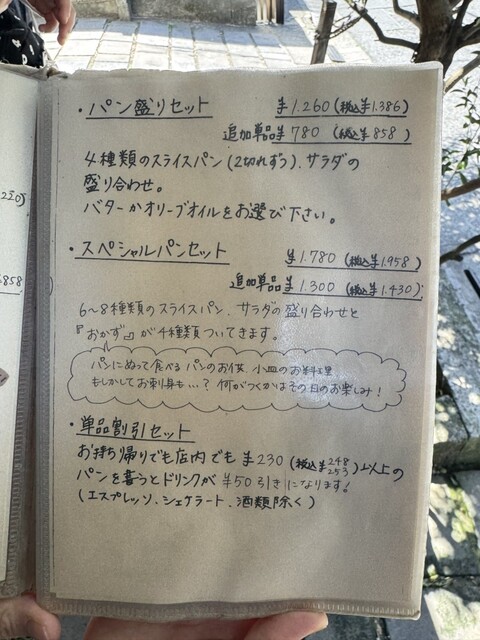 ・パン盛りセット ¥1.260 (税込¥1.386)
追加単品¥780 (税込¥858)
4種類のスライスパン(2切れずつ)、サラダの
盛り合わせ。
バターかオリーブオイルをお選び下さい。
・スペシャルパンセット ¥1.780 (税込¥1.958)
追加単品¥1.300 (税込¥1.430)
6~8種類のスライスパン、サラダの盛り合わせと
『おかず』が4種類ついてきます。
パンにぬって食べるパンのお供、小皿のお料理
もしかしてお刺身も…?何がつくかはその日のお楽しみ!
・単品割引セット
お持ち帰りでも店内でも¥230 (税込¥248 253)以上の
パンを買うとドリンクが¥50引きになります!
(エスプレッソ、シェケラート、酒類除く)
858